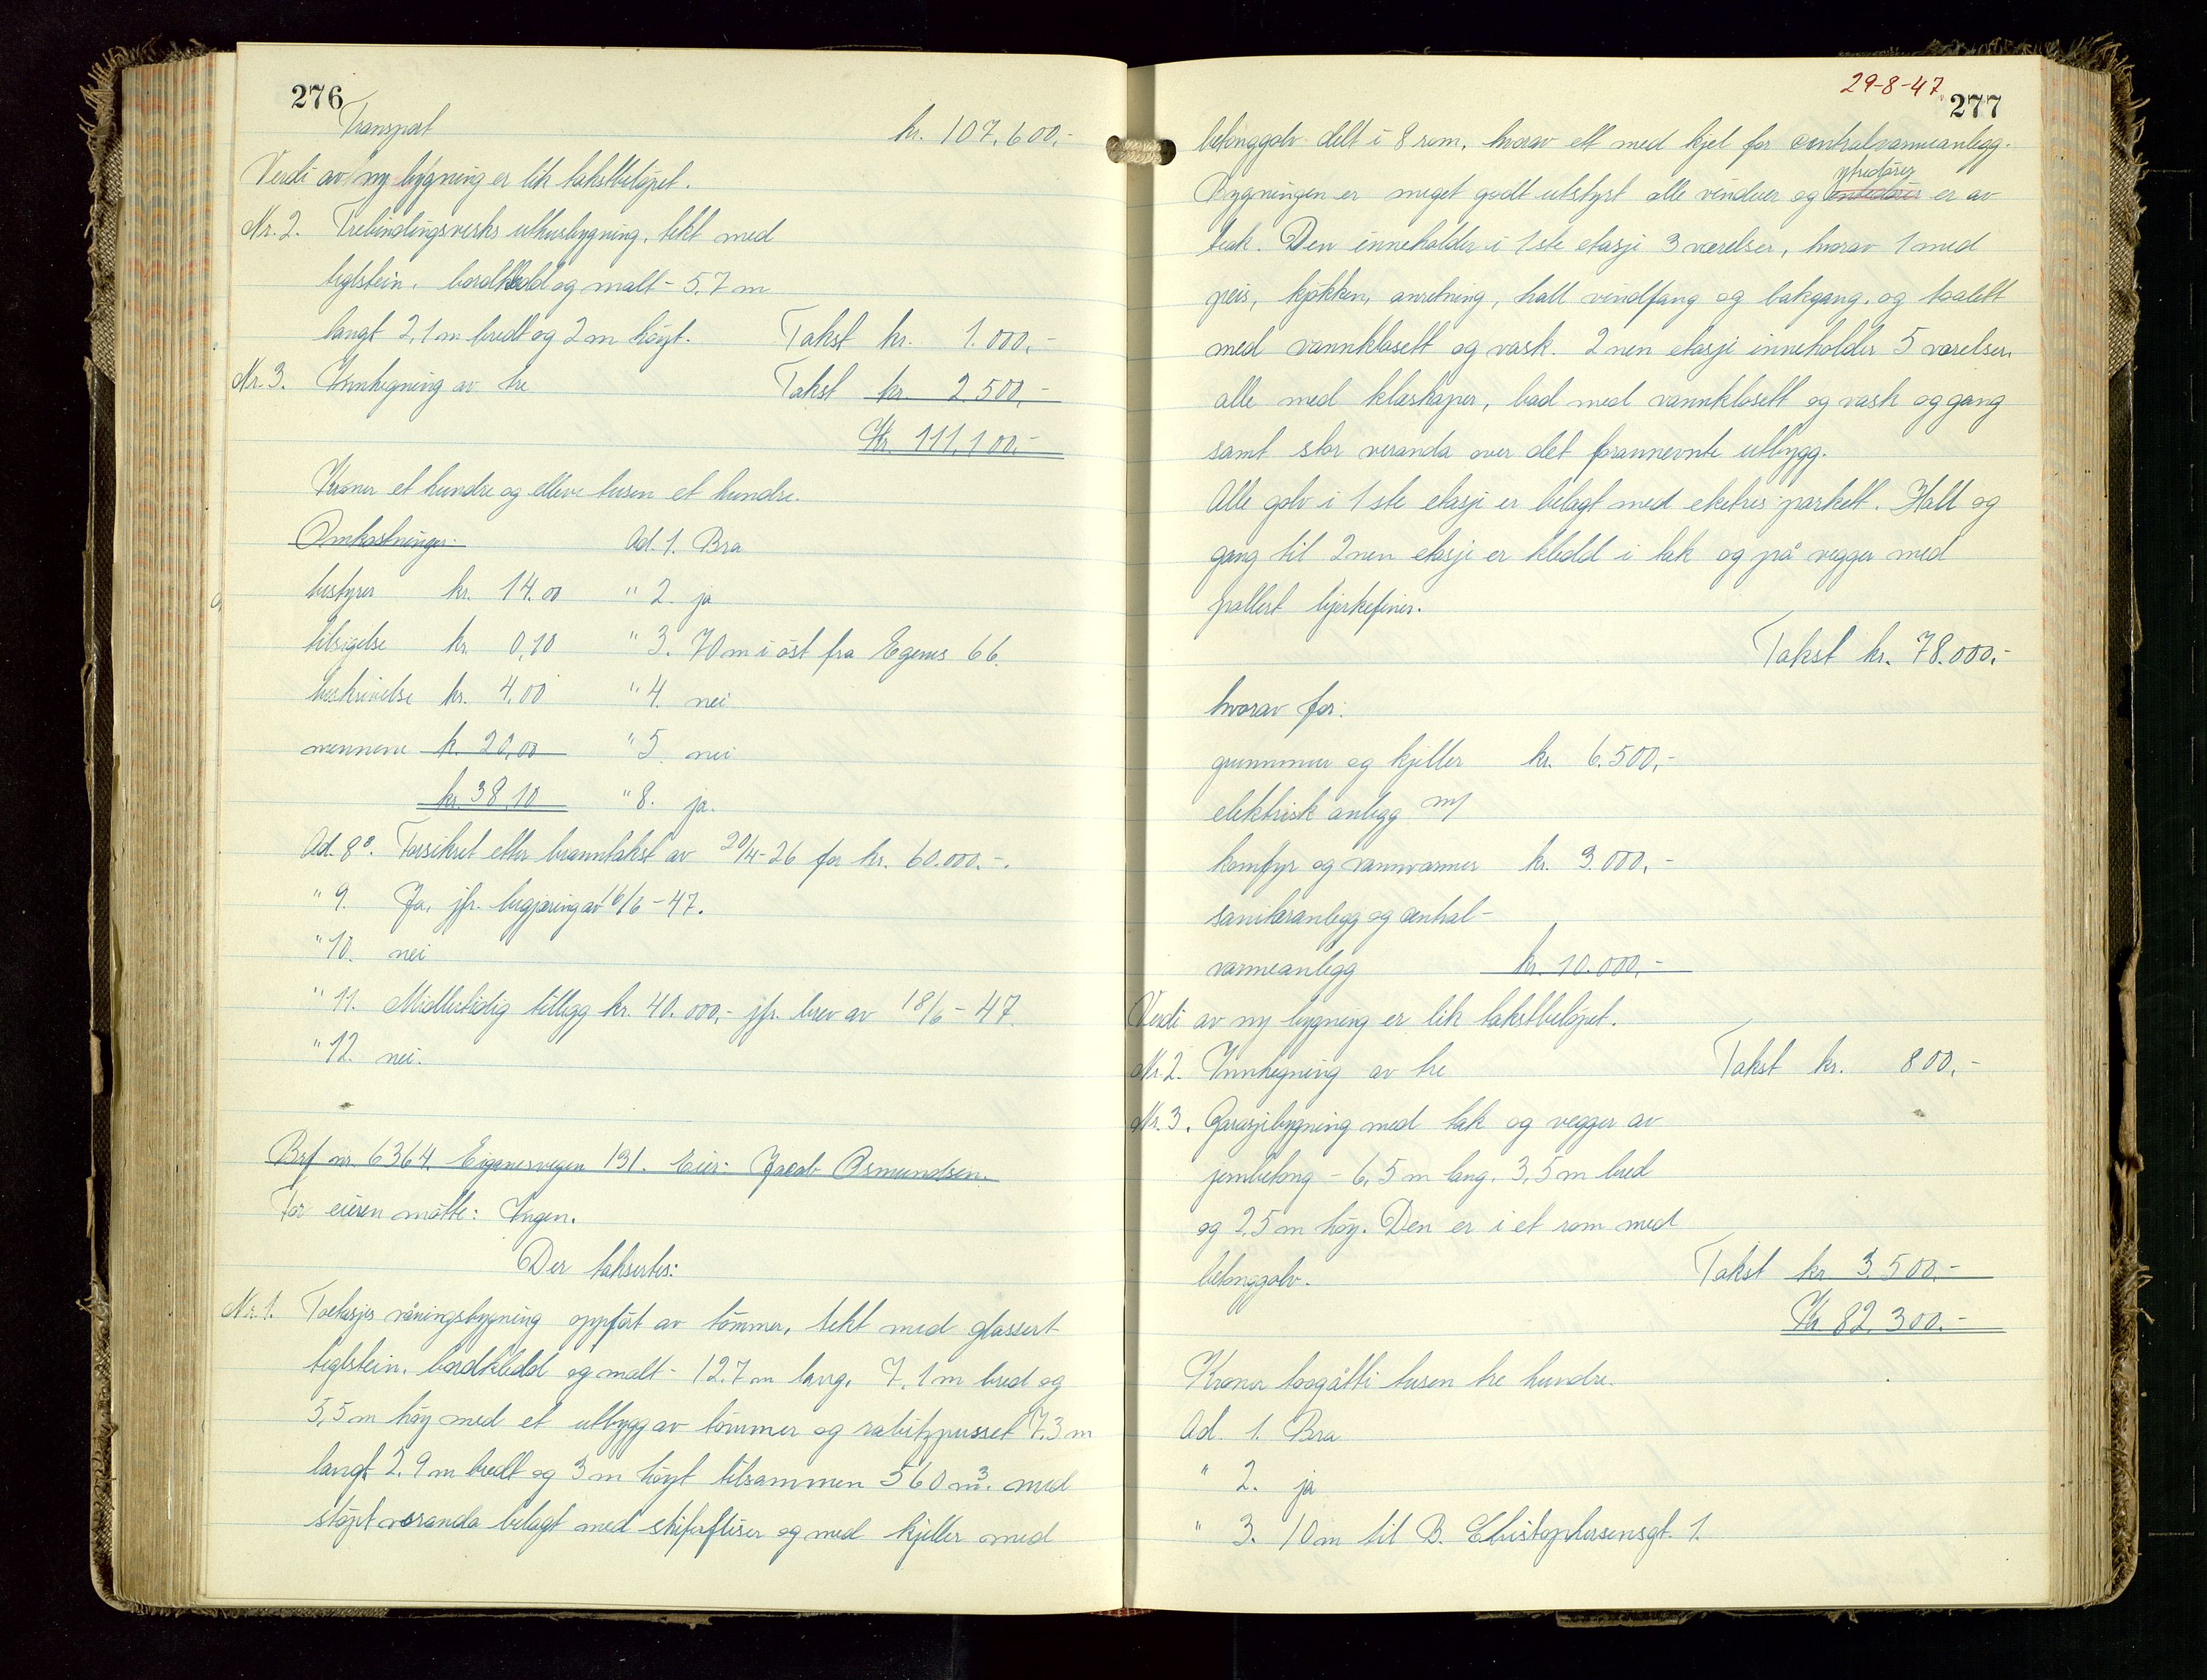 276
Transport kr. 107.600,-
Verdi av ny bygning er lik takstbeløpet.
Nr. 2. Trebindingsverks uthusbygning, tekt med
teglstein, bordkledd og malt - 5,7 m
langt 2,1 m bredt og 2 m høyt. Takst kr. 1.000,-
Nr. 3. Innhegning av tre Takst kr. 2.500,-
Kr. 111.100,-
Kroner et hundre og elleve tusen et hundre.
Omkostninger: Ad. 1. Bra
bestyrer kr. 14.00 " 2. ja
tilsigelse kr. 0,10 " 3. 70 m i øst fra Egenes 66.
beskrivelse kr. 4,00 " 4. nei
mennene kr. 20,00 " 5. nei
kr. 38,10 " 8. ja.
Ad. 8°. Forsikret etter branntakst av 20/4-26 for kr. 60.000.-.
" 9. Ja, jfr. begjæring av 16/6-47.
" 10. nei
" 11. Midlertidig tillegg kr. 40.000,- jfr. brev av 18/6-47.
" 12. nei.
Brf nr. 6364. Eiganesvegen 131. Eier: Jacob Osmundsen.
For eieren møtte: Ingen.
Der taksertes:
Nr. 1. Toetasjes våningsbygning oppført av tømmer, tekt med glassert
teglstein, bordkledd og malt - 12,7 m lang, 7,1 m bred og
5,5 m høy med et utbygg av tømmer og rabitzpusset 7,3 m
langt 2,9 m bredt og 3 m høyt tilsammen 560 m³. med
støpt veranda belagt med skiferfliser og med kjeller med
29-8-47
277
betonggolv delt i 8 rom, hvorav ett med kjel for centralvarmeanlegg.
ytredører
Bygningen er meget godt utstyrt alle vinduer og er av
teak. Den inneholder i 1ste etasje 3 værelser, hvorav 1 med
peis, kjøkken, anretning, hall vindfang og bakgang, og toalett
med vannklosett og vask. 2nen etasje inneholder 5 værelser,
alle med kleskaper, bad med vannklosett og vask og gang
samt stor veranda over det forannevnte utbygg.
Alle golv i 1ste etasje er belagt med eketres parkett. Hall og
gang til 2nen etasje er kledd i tak og på vegger med
pollert bjerkefiner.
Takst kr. 78.000,-
hvorav for:
grunnmur og kjeller kr. 6.500,-
elektrisk anlegg m/
komfyr og vannvarmer kr. 3.000,-
sanitæranlegg og central-
varmeanlegg kr. 10.000,-
Verdi av ny bygning er lik takstbeløpet.
Nr. 2. Innhegning av tre Takst kr. 800,-
Nr. 3. Garasjebygning med tak og vegger av
jernbetong - 6,5 m lang, 3,5 m bred
og 2,5 m høy. Den er i et rom med
betonggolv. Takst kr 3.500.-
Kr 82.300.-
Kroner toogåtti tusen tre hundre.
Ad. 1. Bra
" 2. ja
" 3. 10 m til B. Christophersensgt. 1.